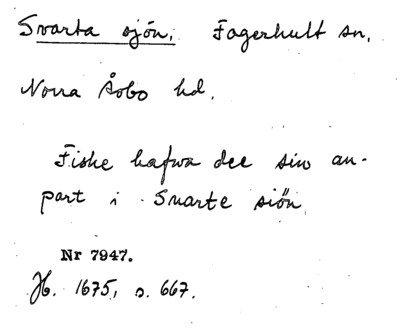 Svarta sjön, Fagerhult sn,
Norra Åsbo hd.
Fiske hafwa dee sin an-
part i Suarte siön
Nr 7947.
Jb. 1675, s. 667.